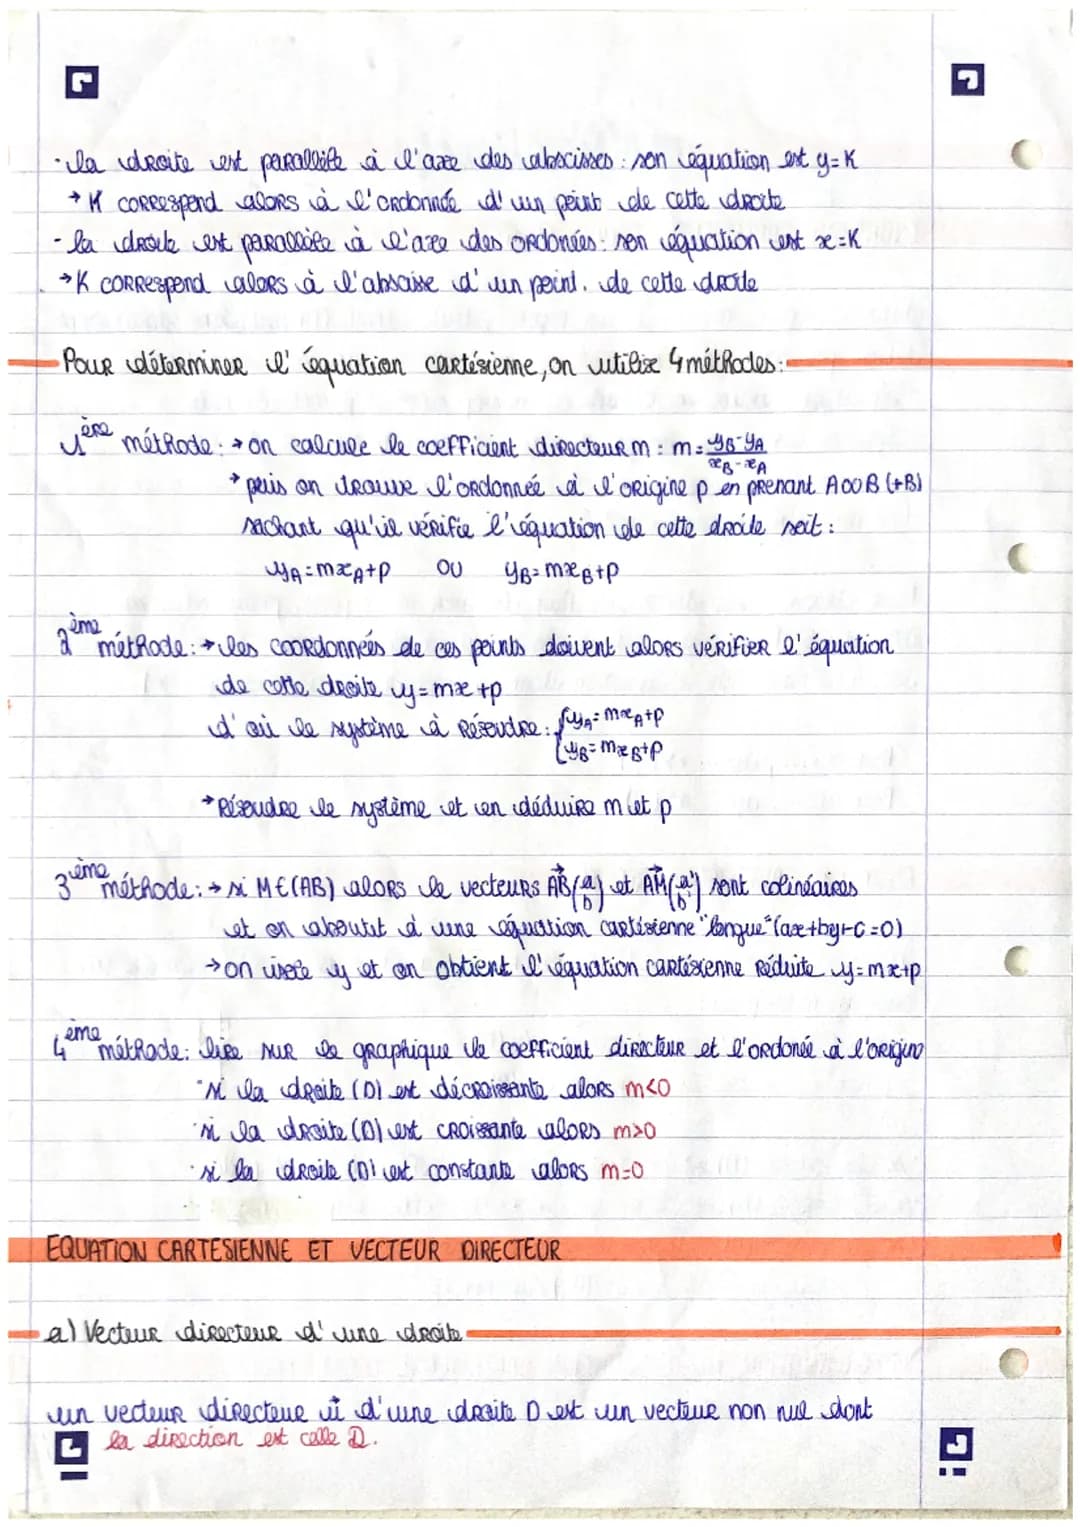 - la droite est parallèle à l'axe des abscisses : son équation est y=K
→ K correspond alors à l'ordonnée d'un point de cette droite
- la droite est parallèle à l'axe des ordonées : son équation est x=K
→ K correspond alors à l'absaisse d'un point. de cette droite
Pour déterminer l'équation cartésienne, on utilise 4 méthodes :
1ère méthode : → on calcule le coefficient directeur m : m = yB-yA / xB-xA
→ puis on trouve l'ordonnée à l'origine p en prenant A ou B (+B)
sachant qu'il vérifie l'équation de cette droite soit :
yA = mxA+p ou yB = mxB+p
2ème méthode : → les coordonnées de ces points doivent alors vérifier l'équation
de cette droite y = mx +p
d'où le système à résoudre : { yA = mxA+p
yB = mxB+p
→ Résoudre le système et en déduire m et p
3ème méthode : → si M∈(AB) alors le vecteurs AB⃗(a b) et AM⃗(a' b') sont colinéaires
et on aboutit à une équation cartésienne "longue" (ax+by+c=0)
→ on isole y et on obtient l'équation cartésienne réduite y=mx+p
4ème méthode : lire sur le graphique le coefficient directeur et l'ordonée à l'origine
· si la droite (D) est décroissante alors m<0
· si la droite (D) est croissante alors m>0
· si la droite (D) est constante alors m=0
EQUATION CARTESIENNE ET VECTEUR DIRECTEUR
a) Vecteur directeur d'une droite
un vecteur directeur u⃗ d'une droite D est un vecteur non nul dont
la direction est celle D.